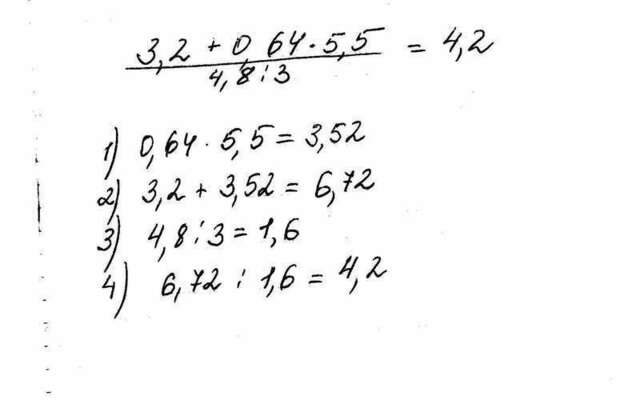 3,2 + 0,64·5,5 = 4,2
4,8:3
1) 0,64 · 5,5 = 3,52
2) 3,2 + 3,52 = 6,72
3) 4,8:3 = 1,6
4) 6,72 : 1,6 = 4,2